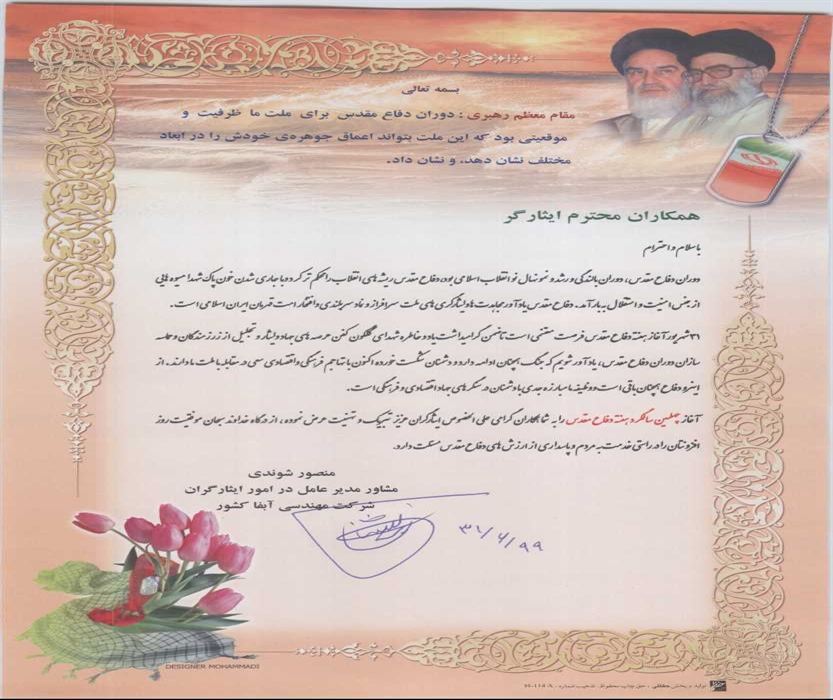 بسمه تعالی
مقام معظم رهبری : دوران دفاع مقدس برای ملت ما ظرفیت و
موقعیتی بود که این ملت بتواند اعماق جوهره‌ی خودش را در ابعاد
مختلف نشان دهد، و نشان داد.
همکاران محترم ایثارگر
با سلام و احترام
دوران دفاع مقدس، دوران بالندگی و رشد و نمو نهال نو انقلاب اسلامی بود، دفاع مقدس ریشه های انقلاب را محکم تر کرد و با جاری شدن خون پاک شهدا میوه هایی
از جنس امنیت و استقلال به بار آمد. دفاع مقدس یادآور مجاهدت ها و ایثارگری های ملت سرافراز و نماد سربلندی و افتخار است قهرمان ایران اسلامی است.
۳۱ شهریور آغاز هفته دفاع مقدس فرصت مغتنمی است تا ضمن گرامیداشت یاد و خاطره شهدای گلگون کفن عرصه های جهاد و ایثار و تجلیل از رزمندگان و حماسه
سازان دوران دفاع مقدس، یادآور شویم که جنگ همچنان ادامه دارد و دشمنان شکست خورده اکنون با تهاجم فرهنگی و اقتصادی سعی در مقابله با ملت ما دارند. از
اینرو دفاع همچنان باقی است و وظیفه ما مبارزه جدی با دشمنان در سنگرهای جهاد اقتصادی و فرهنگی است.
آغاز چهلمین سالگرد هفته دفاع مقدس را به شما همکاران گرامی علی الخصوص ایثارگران عزیز تبریک و تهنیت عرض نموده، از درگاه خداوند سبحان موفقیت روز
افزونتان را در راستی خدمت به مردم و پاسداری از ارزش های دفاع مقدس مسئلت دارد.
منصور شوندی
مشاور مدیر عامل در امور ایثارگران
شرکت مهندسی آبفا کشور
۳۱/۶/۹۹
DESIGNER MOHAMMADI